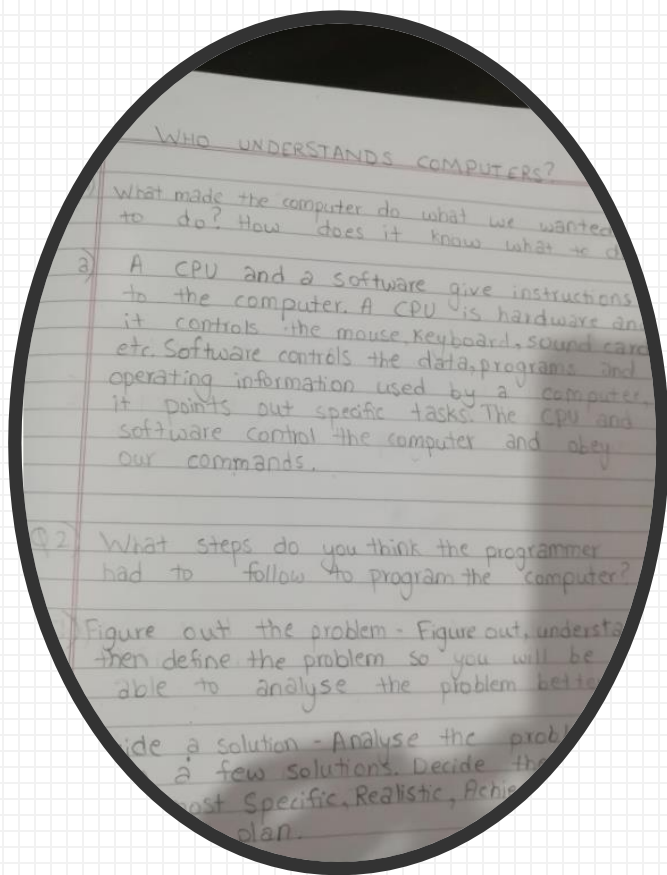 WHO UNDERSTANDS COMPUTERS?
What made the computer do what we wanted
to do? How does it know what to
a) A CPU and a software give instructions
to the computer. A CPU is hardware and
it controls the mouse, keyboard, sound card
etc. Software controls the data, programs and
operating information used by a computer,
it points out specific tasks. The CPU and
software control the computer and obey
our commands.
Q 2) What steps do you think the programmer
had to follow to program the computer?
Figure out the problem - Figure out, understa
then define the problem so you will be
able to analyse the problem bette
ide a solution - Analyse the probl
a few solutions. Decide the
most Specific, Realistic, Achie
plan.